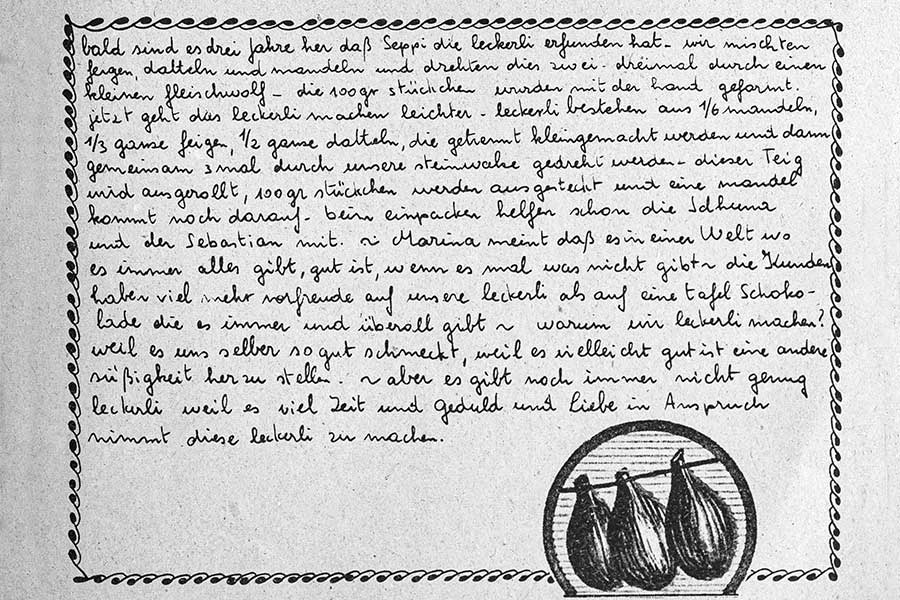 bald sind es drei Jahre her daß Seppi die leckerli erfunden hat - wir mischten
feigen, datteln und mandeln und drehten dies zwei - dreimal durch einen
kleinen fleischwolf - die 100gr stückchen wurden mit der hand geformt.
jetzt geht das leckerli machen leichter - leckerli bestehen aus 1/6 mandeln,
1/3 ganze feigen, 1/2 ganze datteln, die getrennt kleingemacht werden und dann
gemeinsam 3 mal durch unsere steinwalze gedreht werden - dieser Teig
wird ausgerollt, 100gr stückchen werden ausgesteckt und eine mandel
kommt noch darauf - beim einpacken helfen schon die
und der Sebastian mit. ~ Marina meint daß es in einer Welt wo
es immer alles gibt, gut ist, wenn es mal was nicht gibt ~ die Kunden
haben viel mehr vorfreude auf unsere leckerli als auf eine tafel Schoko-
lade die es immer und überall gibt ~ warum wir leckerli machen?
weil es uns selber so gut schmeckt, weil es vielleicht gut ist eine andere
süßigkeit her zu stellen. ~ aber es gibt noch immer nicht genug
leckerli weil es viel Zeit und Geduld und Liebe in Anspruch
nimmt diese leckerli zu machen.